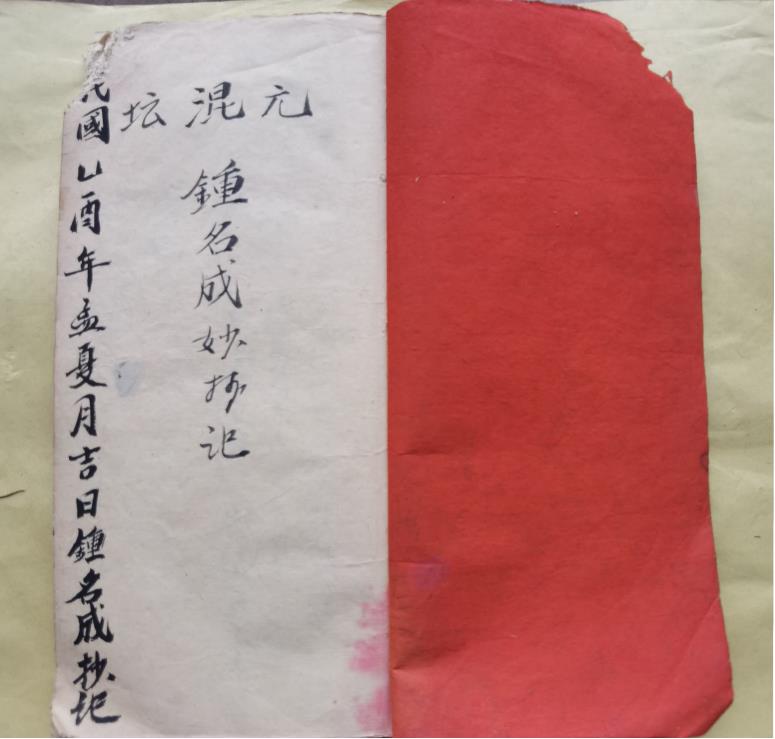 元混坛
鍾名成妙抄记
民國乚酉年孟夏月吉日鍾名成抄记